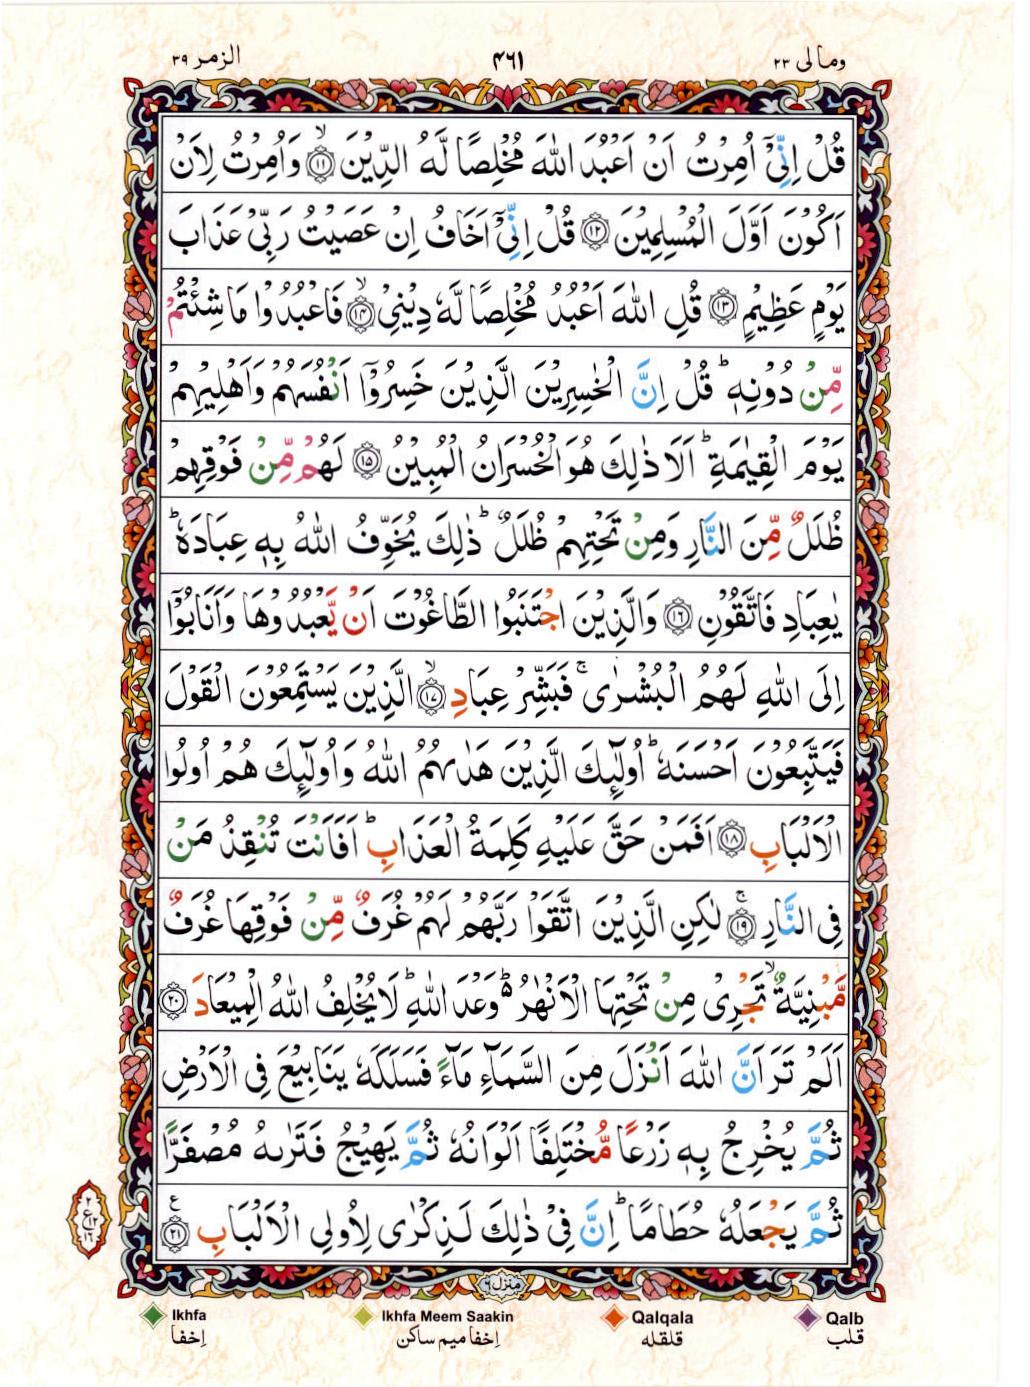 الزمر ۳۹
۴۶۱
ومالی ۲۳
قُلْ اِنِّیْۤ اُمِرْتُ اَنْ اَعْبُدَ اللّٰهَ مُخْلِصًا لَّهُ الدِّیْنَ ۙ‏﴿۱۱﴾ وَاُمِرْتُ لِاَنْ
اَكُوْنَ اَوَّلَ الْمُسْلِمِیْنَ ﴿۱۲﴾ قُلْ اِنِّیْۤ اَخَافُ اِنْ عَصَیْتُ رَبِّیْ عَذَابَ
یَوْمٍ عَظِیْمٍ ﴿۱۳﴾ قُلِ اللّٰهَ اَعْبُدُ مُخْلِصًا لَّهٗ دِیْنِیْ ۙ‏﴿۱۴﴾ فَاعْبُدُوْا مَا شِئْتُمْ
مِّنْ دُوْنِهٖ ؕ قُلْ اِنَّ الْخٰسِرِیْنَ الَّذِیْنَ خَسِرُوْۤا اَنْفُسَهُمْ وَاَهْلِیْهِمْ
یَوْمَ الْقِیٰمَةِ ؕ اَلَا ذٰلِكَ هُوَ الْخُسْرَانُ الْمُبِیْنُ ﴿۱۵﴾ لَهُمْ مِّنْ فَوْقِهِمْ
ظُلَلٌ مِّنَ النَّارِ وَمِنْ تَحْتِهِمْ ظُلَلٌ ؕ ذٰلِكَ یُخَوِّفُ اللّٰهُ بِهٖ عِبَادَهٗ ؕ
یٰعِبَادِ فَاتَّقُوْنِ ﴿۱۶﴾ وَالَّذِیْنَ اجْتَنَبُوا الطَّاغُوْتَ اَنْ یَّعْبُدُوْهَا وَاَنَابُوْۤا
اِلَی اللّٰهِ لَهُمُ الْبُشْرٰی ۚ فَبَشِّرْ عِبَادِ ۙ‏﴿۱۷﴾ الَّذِیْنَ یَسْتَمِعُوْنَ الْقَوْلَ
فَیَتَّبِعُوْنَ اَحْسَنَهٗ ؕ اُولٰٓئِكَ الَّذِیْنَ هَدٰىهُمُ اللّٰهُ وَاُولٰٓئِكَ هُمْ اُولُوا
الْاَلْبَابِ ﴿۱۸﴾ اَفَمَنْ حَقَّ عَلَیْهِ كَلِمَةُ الْعَذَابِ ؕ اَفَاَنْتَ تُنْقِذُ مَنْ
فِی النَّارِ ۚ‏﴿۱۹﴾ لٰكِنِ الَّذِیْنَ اتَّقَوْا رَبَّهُمْ لَهُمْ غُرَفٌ مِّنْ فَوْقِهَا غُرَفٌ
مَّبْنِیَّةٌ ۙ تَجْرِیْ مِنْ تَحْتِهَا الْاَنْهٰرُ ؕ۬ وَعْدَ اللّٰهِ ؕ لَا یُخْلِفُ اللّٰهُ الْمِیْعَادَ ﴿۲۰﴾
اَلَمْ تَرَ اَنَّ اللّٰهَ اَنْزَلَ مِنَ السَّمَآءِ مَآءً فَسَلَكَهٗ یَنَابِیْعَ فِی الْاَرْضِ
ثُمَّ یُخْرِجُ بِهٖ زَرْعًا مُّخْتَلِفًا اَلْوَانُهٗ ثُمَّ یَهِیْجُ فَتَرٰىهُ مُصْفَرًّا
ثُمَّ یَجْعَلُهٗ حُطَامًا ؕ اِنَّ فِیْ ذٰلِكَ لَذِكْرٰی لِاُولِی الْاَلْبَابِ ﴿۲۱﴾ ع
۲
ع
۱۲
۱۶
منزل ۶
Ikhfa
Ikhfa Meem Saakin
Qalqala
Qalb
اِخفا
اِخفا میم ساکن
قلقله
قلب